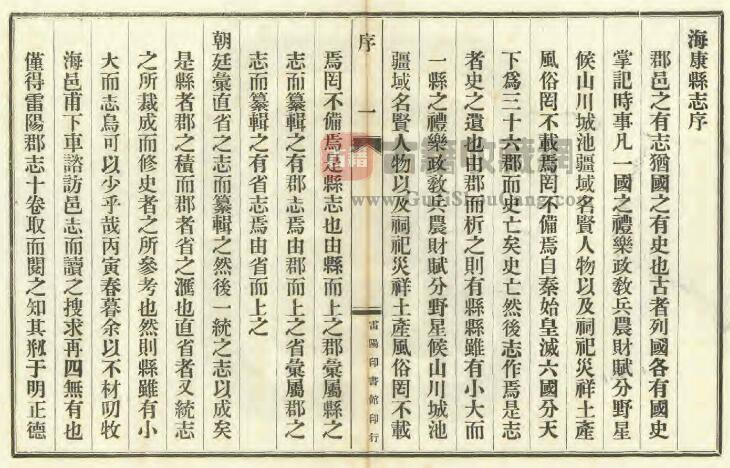 海康縣志序
郡邑之有志猶國之有史也古者列國各有國史
掌記時事凡一國之禮樂政敎兵農財賦分野星
候山川城池疆域名賢人物以及祠祀災祥土產
風俗罔不載焉罔不備焉自秦始皇滅六國分天
下爲三十六郡而史亡矣史亡然後志作焉是志
者史之遺也由郡而析之則有縣縣雖有小大而
一縣之禮樂政敎兵農財賦分野星候山川城池
疆域名賢人物以及祠祀災祥土產風俗罔不載
序 一
雷陽印書館印行
焉罔不備焉是縣志也由縣而上之郡彙屬縣之
志而纂輯之有郡志焉由郡而上之省彙屬郡之
志而纂輯之有省志焉由省而上之
朝廷彙直省之志而纂輯之然後一統之志以成矣
是縣者郡之積而郡者省之滙也直省者又統志
之所裁成而修史者之所參考也然則縣雖有小
大而志烏可以少乎哉丙寅春暮余以不材叨牧
海邑甫下車諮訪邑志而讀之搜求再四無有也
僅得雷陽郡志十卷取而閱之知其剏于明正德
古籍收藏網
www.GuJiShouCang.com